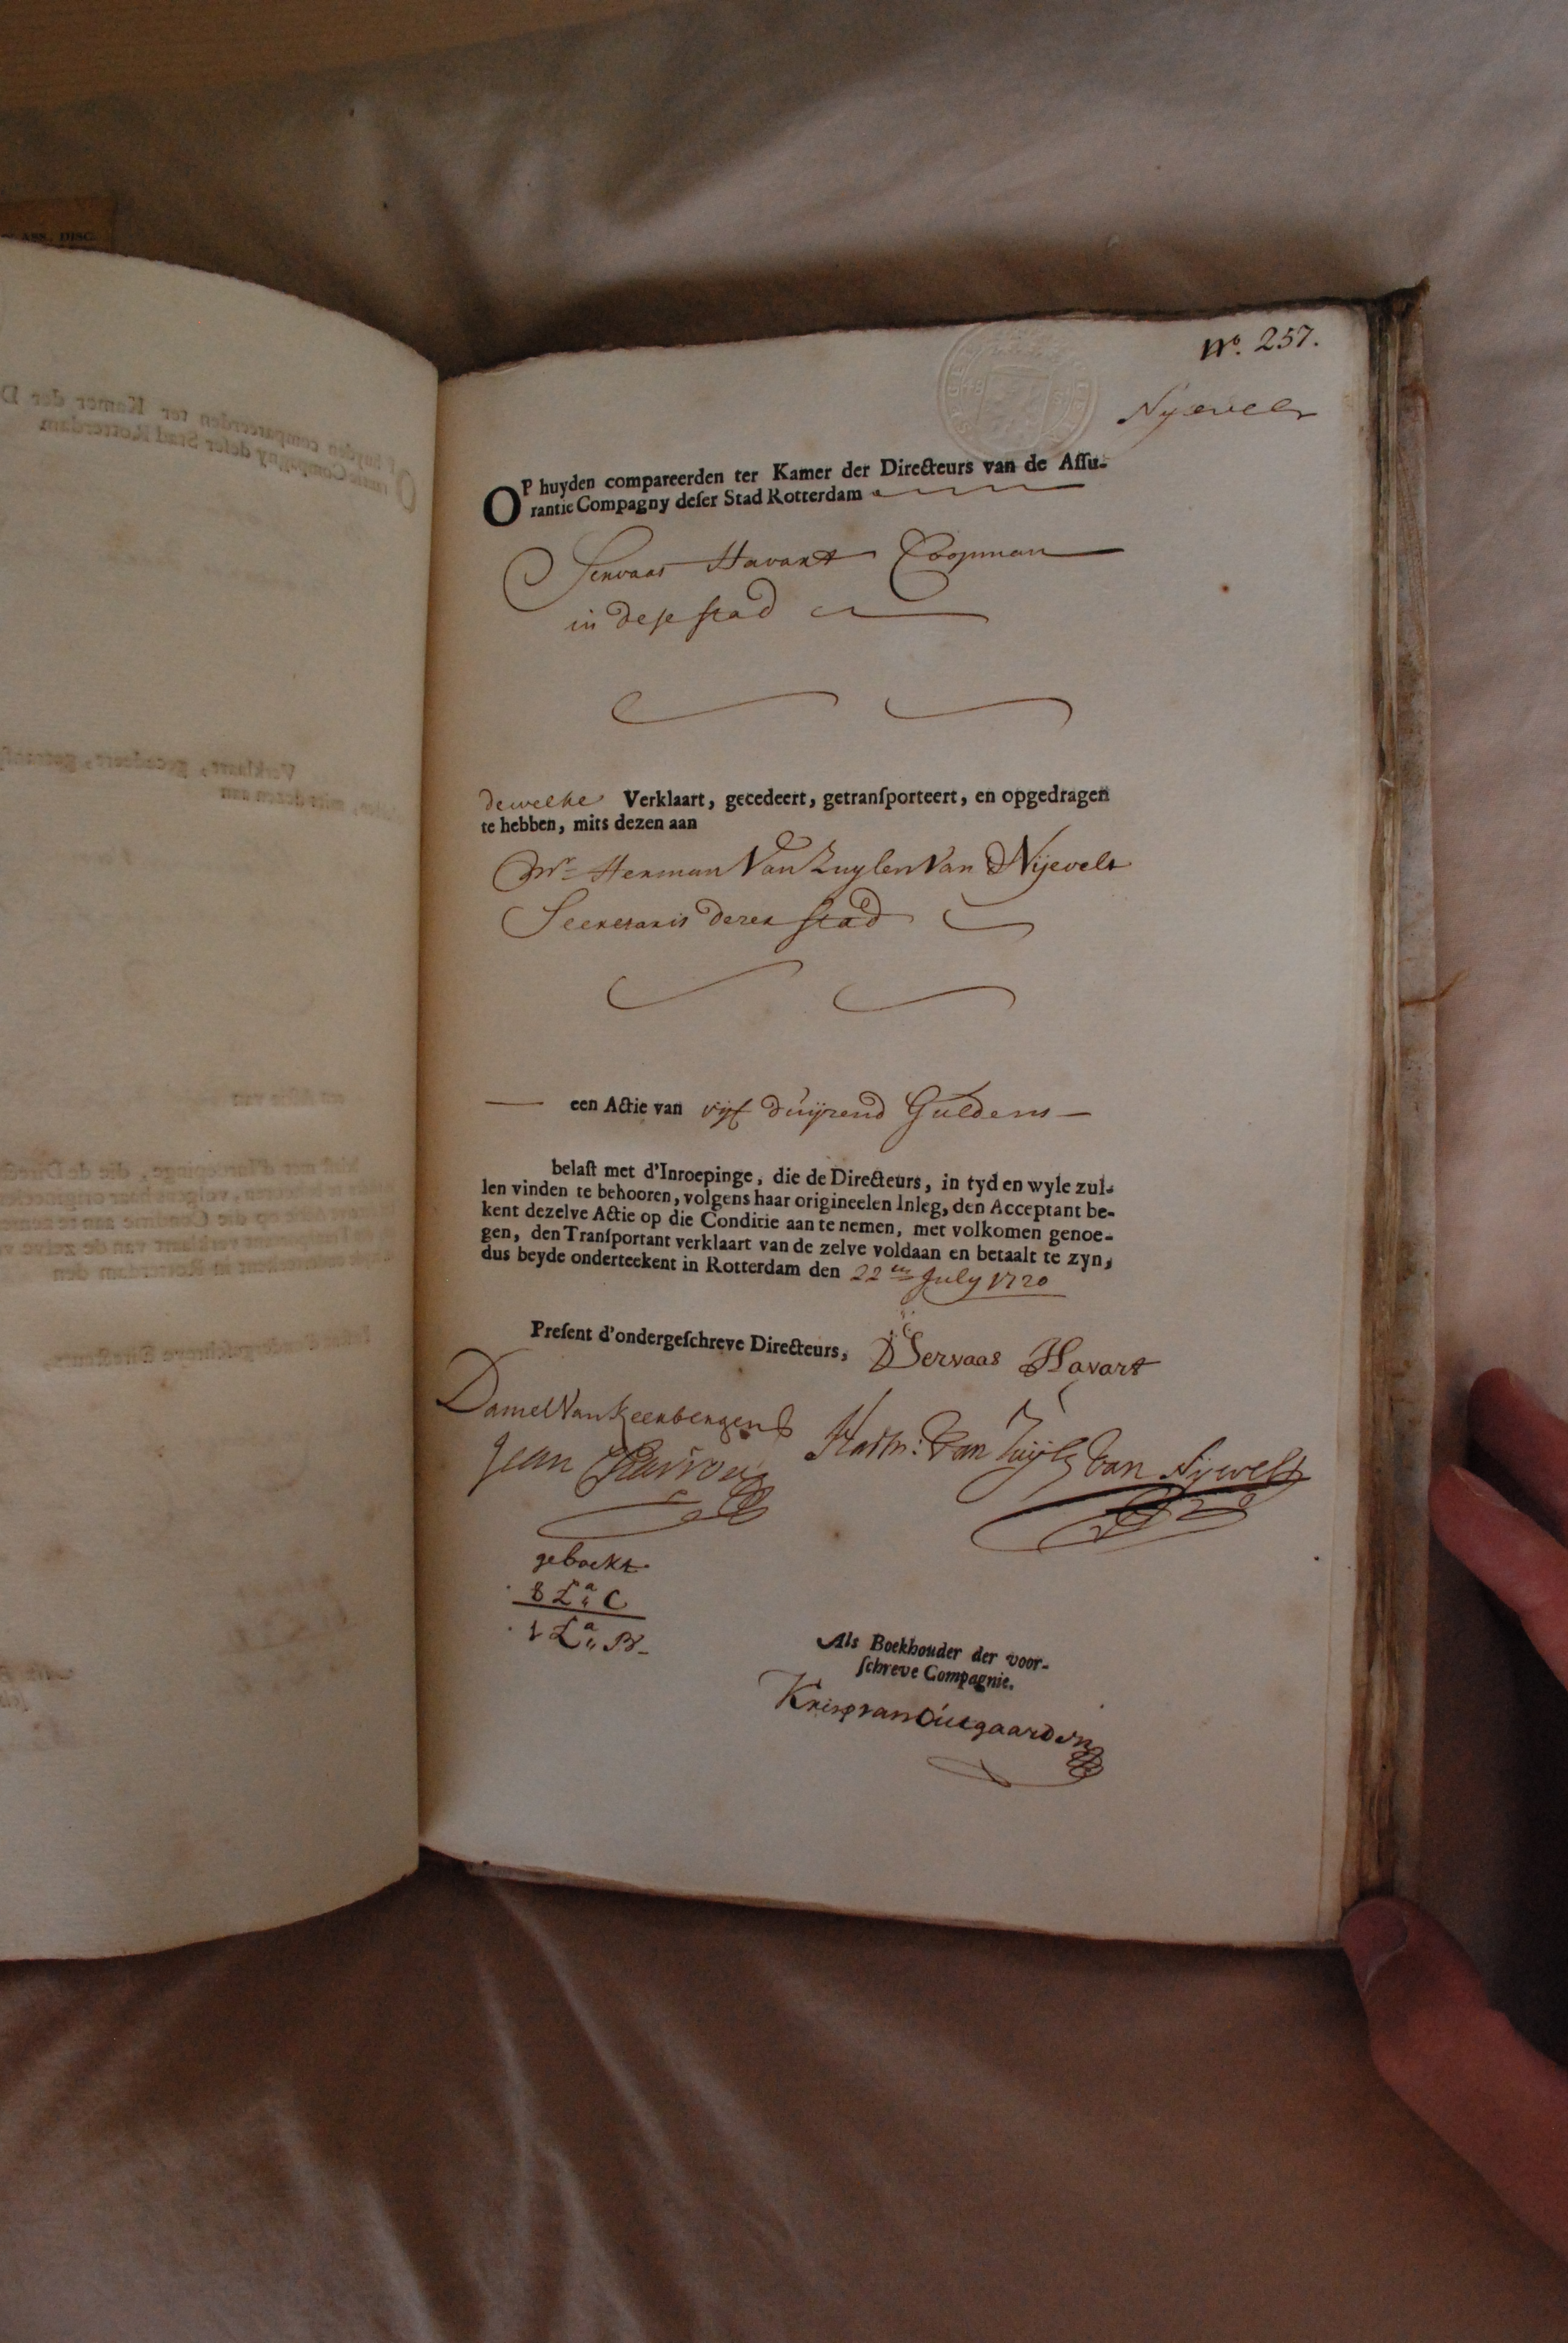 No. 257.
Nyevelt
OP huyden compareerden ter Kamer der Directeurs van de Assu-
rantie Compagny deser Stad Rotterdam
Servaas Havart Coopman
in dese stad
dewelke Verklaart, gecedeert, getransporteert, en opgedragen
te hebben, mits dezen aan
Mr. Herman Van Zuylen Van Nijevelt
Secretaris dezer stad
een Actie van vijf duijzend Guldens
belast met d'Inroepinge, die de Directeurs, in tyd en wyle zul-
len vinden te behooren, volgens haar origineelen Inleg, den Acceptant be-
kent dezelve Actie op die Conditie aan te nemen, met volkomen genoe-
gen, den Transportant verklaart van de zelve voldaan en betaalt te zyn,
dus beyde onderteekent in Rotterdam den 22en July 1720
Present d'ondergeschreve Directeurs, Servaas Havart
Daniel Van Keerbergen
Harm: Van Zuijle Van Nijevelt
Jean
geboekt
8 La C
1 La N
Als Boekhouder der voor-
schreve Compagnie.
Krisp van Outgaarden